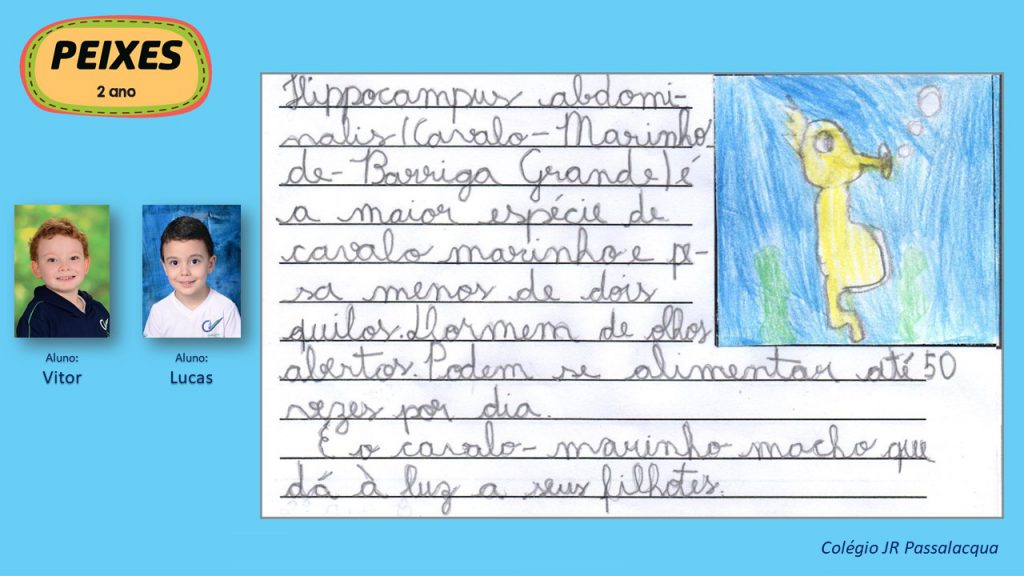 PEIXES
2 ano
Hippocampus abdomi-
nalis (Cavalo-Marinho
de-Barriga Grande) é
a maior espécie de
cavalo marinho e pe-
sa menos de dois
quilos. Dormem de olhos
abertos. Podem se alimentar até 50
vezes por dia.
É o cavalo-marinho macho que
dá à luz a seus filhotes.
Aluno:
Vitor
Aluno:
Lucas
Colégio JR Passalacqua